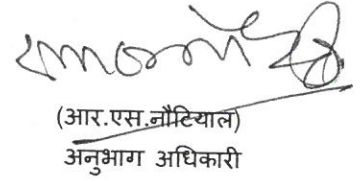 (आर.एस.नौटियाल)
अनुभाग अधिकारी